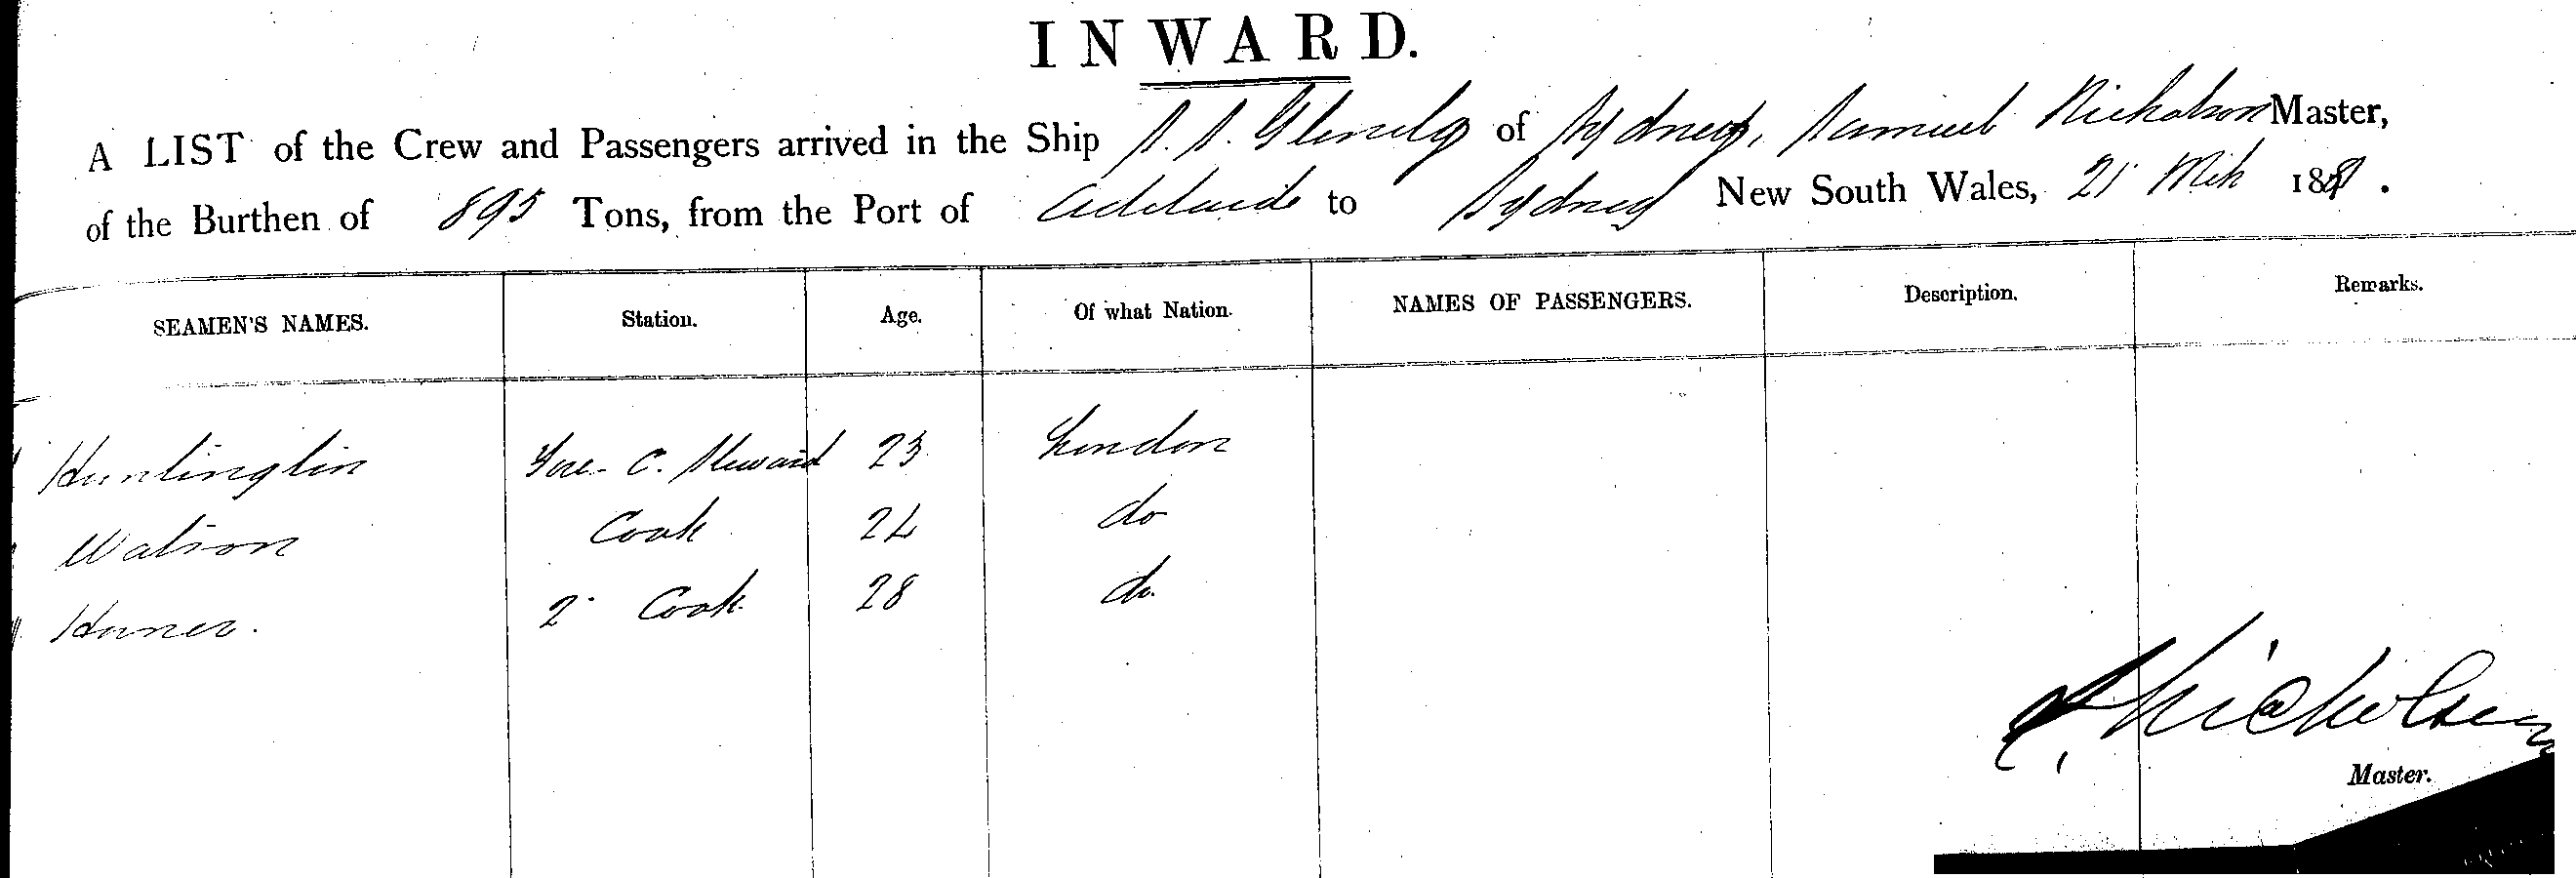 INWARD.
A LIST of the Crew and Passengers arrived in the Ship S. S. Glenelg of Sydney, Samuel Nicholson Master,
of the Burthen of 895 Tons, from the Port of Adelaide to Sydney New South Wales, 21 Mch 188
SEAMEN'S NAMES. Station. Age. Of what Nation. NAMES OF PASSENGERS. Description. Remarks.
Huntington Fore C. Steward 23 London
Watson Cook 24 do
2 Cook 28 do.
S. Nicholson
Master.